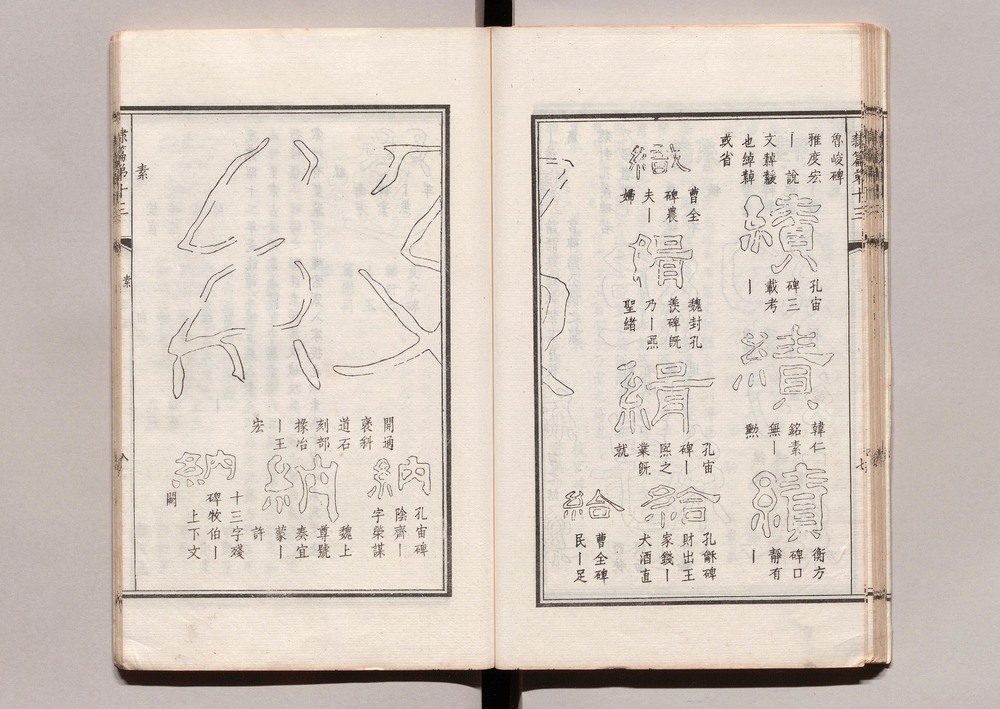 隸篇第十三
七
魯峻碑
雅度宏
丨說
文繛
也綽繛
或省
績
孔宙
碑三
載考
丨
績
韓仁
銘素
無丨
勳
績
衡方
碑口
靜有
丨
織
曹全
碑農
夫丨
婦
緝
魏封孔
羨碑既
乃丨熙
聖緒
緝
孔宙
碑丨
熙之
業既
就
給
孔龢碑
財出王
家錢丨
犬酒直
給
曹全碑
民丨足
開通
褒斜
道石
刻部
掾冶
丨王
宏
納
孔宙碑
陰齊丨
字榮謀
納
魏上
尊號
奏宜
蒙丨
許
納
十三字殘
碑牧伯丨
上下文
闕
素
隸篇第十三
素
八